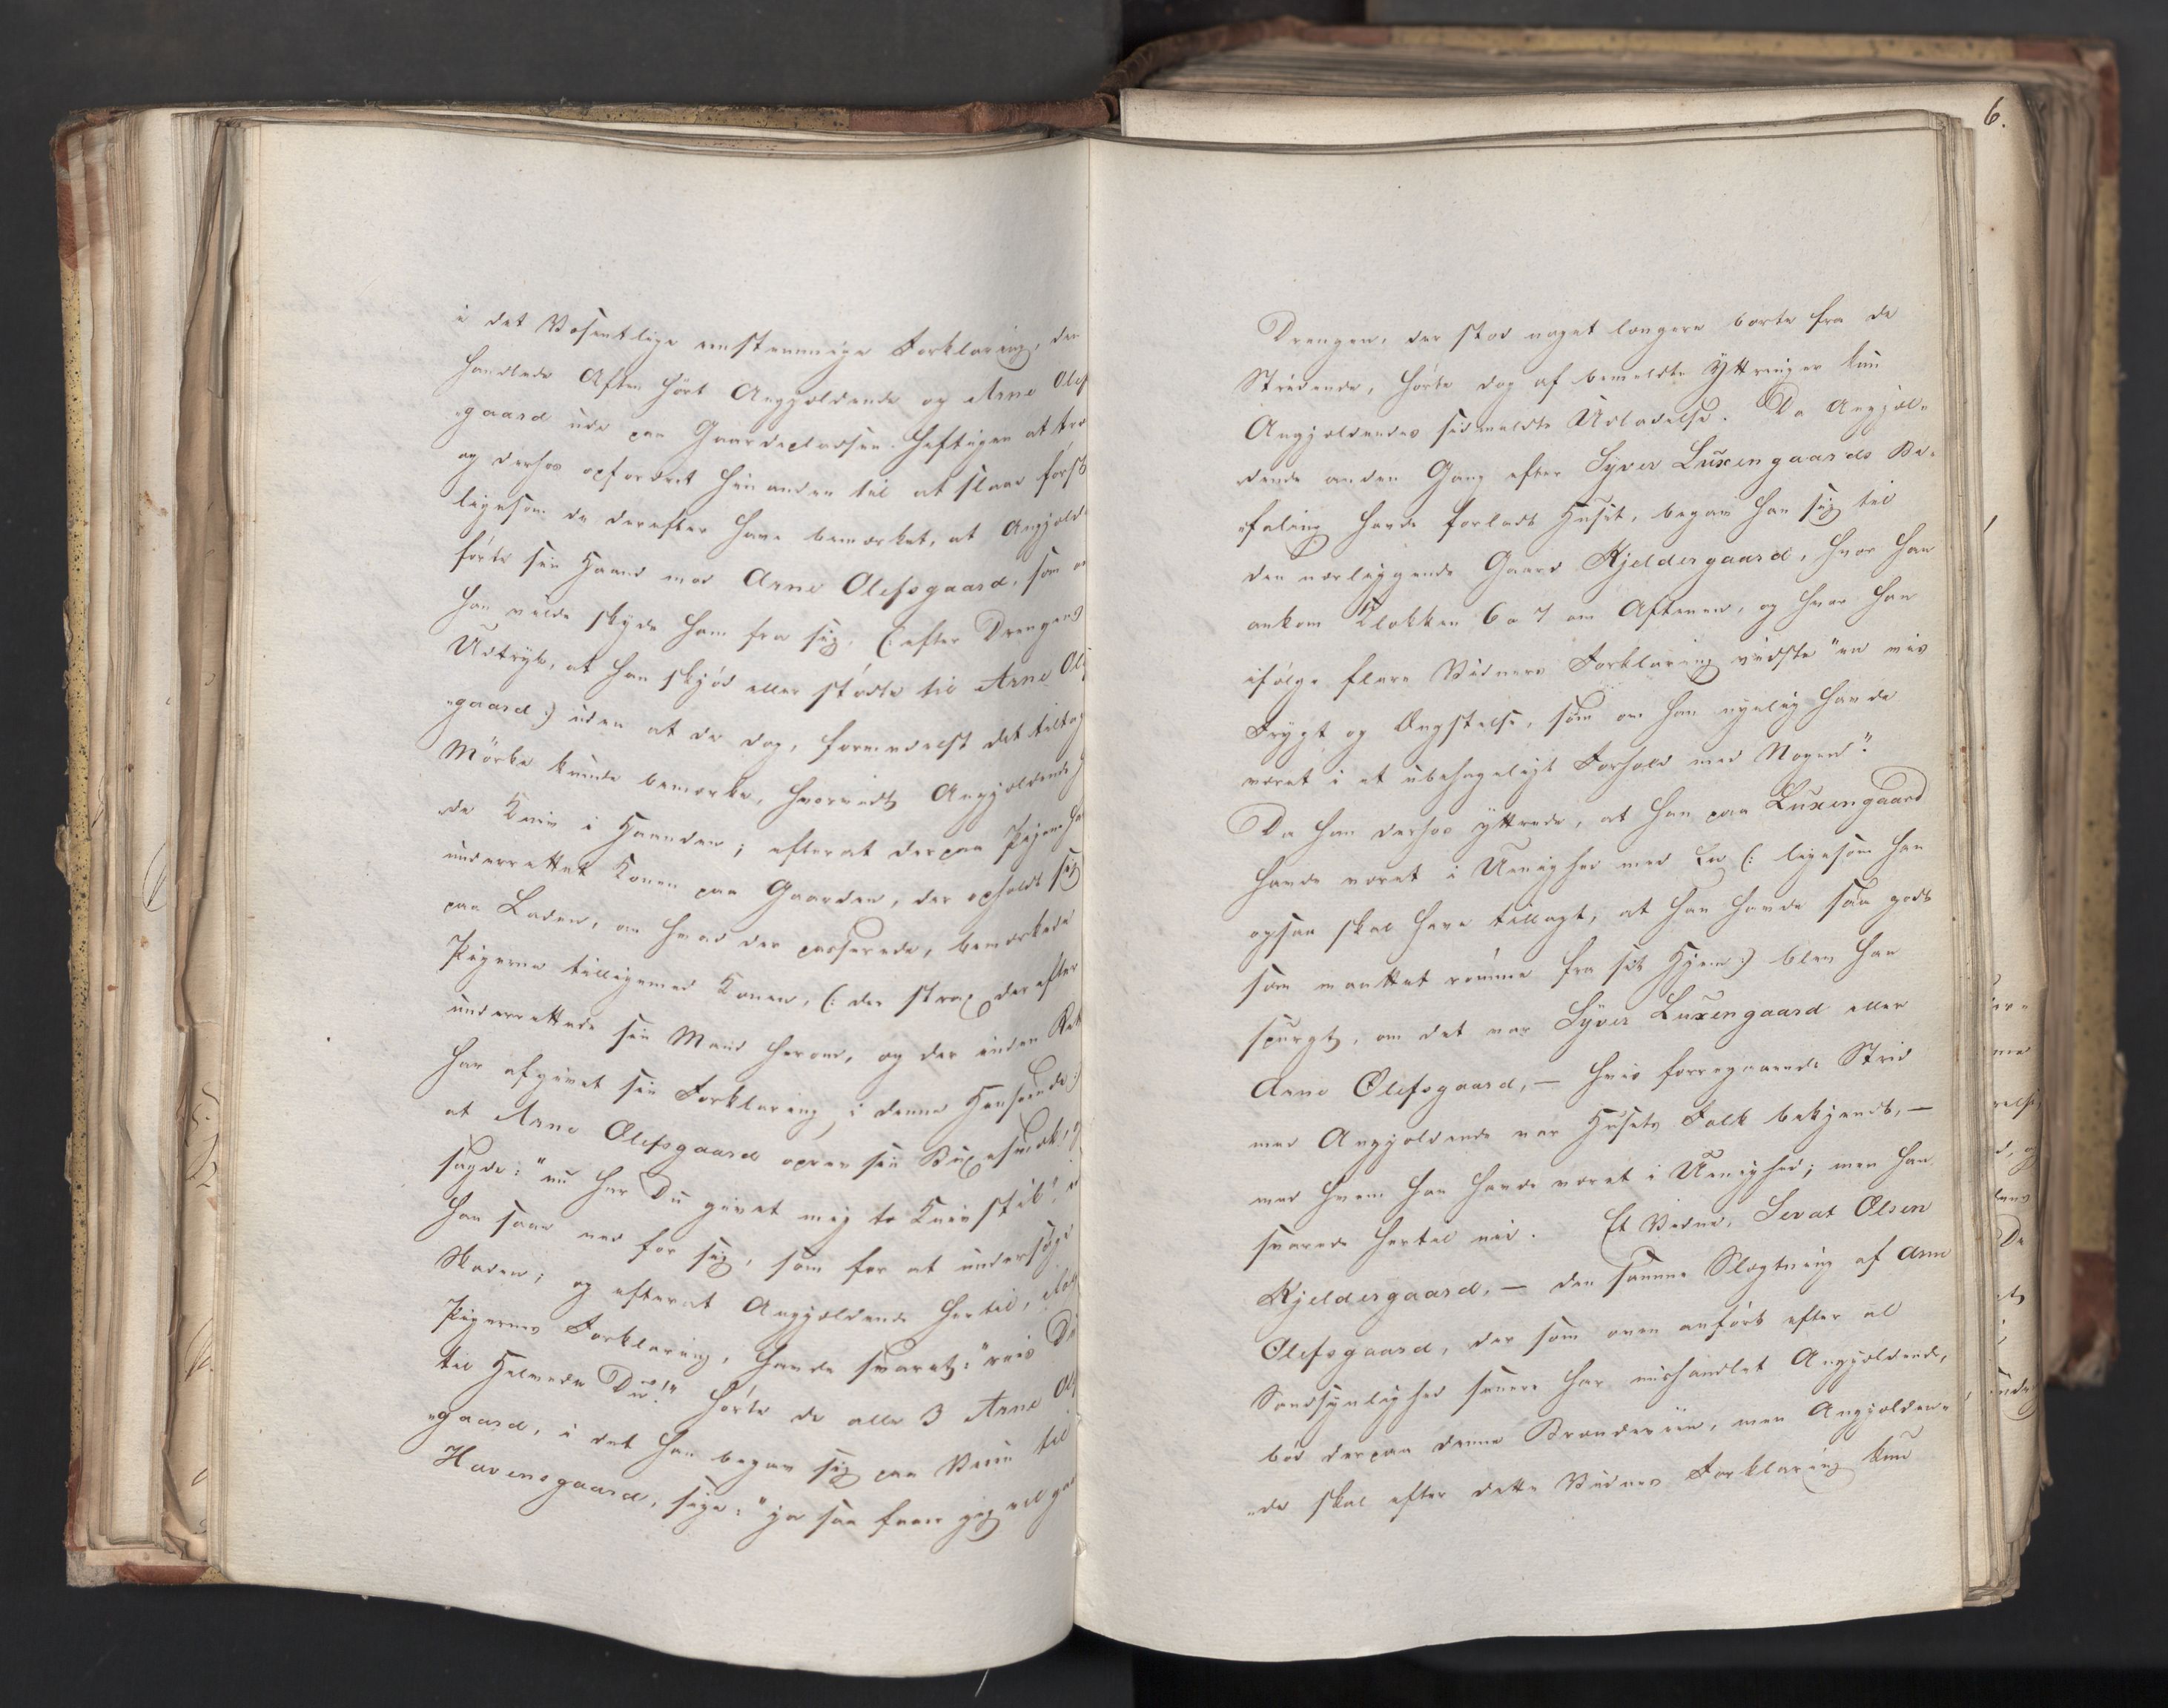 i det Væsentlige eenstemmige Forklaring, den
handlede Aften hört Angjældende og Arne Olefs
„gaard ude paa Gaardspladsen heftigen at træ
og derhos opfordret hinanden til at slaae först
ligesom de derefter have bemærket, at Angjæld
förte sin Haand mod Arne Olefsgaard, som om
han vilde skyde ham fra sig, (: efter Drengens
Udtryk, at han skjöd eller stödte til Arne Olefs
„gaard :) uden at de dog, formedelst det tiltag
Mörke kunde bemærke, hvorvidt Angjældende h
de Kniv i Haanden; efterat derpaa Pigerne ha
underrettet Konen paa Gaarden, der opholdt sig
paa Laden, om hvad der passerede, bemærkede
Pigerne tilligemed Konen, (: der strax derefter
underrettede sin Mand herom, og der inden Rett
har afgivet sin Forklaring i denne Henseende :)
at Arne Olefsgaard oprev sin Buxesmæk, og
sagde: "nu har Du givet mig to Knivstik!" i
han saae ned for sig, som for at undersöge
Skaden; og efterat Angjældende hertil, efter
Pigernes Forklaring, havde svaret: "reis Du
til Helvede Du!" hörte de alle 3 Arne Olefs
„gaard, i det han begav sig paa Veien til
Havensgaard, sige: "ja saa snart jeg vel gaa
6.
Drengen, der stod noget længere borte fra de
Stridende, hörte dog af bemeldte Yttringer kun
Angjældendes sidmeldte Udladelse. Da Angjæl„
dende anden Gang efter Syver Luxengaards Be„
„faling havde forladt Huset, begav han sig til
den nærliggende Gaard Kjeldergaard, hvor han
ankom Klokken 6 a 7 om Aftenen, og hvor han
ifölge flere Vidners Forklaring viidste "en vis
Frygt og Ængstelse, som om han nylig havde
været i et ubehageligt Forhold med Nogen".
Da han derhos yttrede, at han paa Luxengaard
havde været i Uenighed med En (: ligesom han
ogsaa skal have tillagt, at han havde saa godt
som maattet römme fra sit Hjem :) blev han
spurgt, om det var Syver Luxengaard eller
Arne Olefsgaard, — hvis foregaaende Strid
med Angjældende var Husets Folk bekjendt, —
med hvem han havde været i Uenighed; men han
svarede hertil nei. Et Vidne, Sevat Olsen
Kjeldergaard, — den samme Slægtning af Arne
Olefsgaard, der som oven anfört efter al
Sandsynlighed senere har mishandlet Angjældende,
böd derpaa denne Brændeviin, men Angjælden„
„de skal efter dette Vidnes Forklaring kun